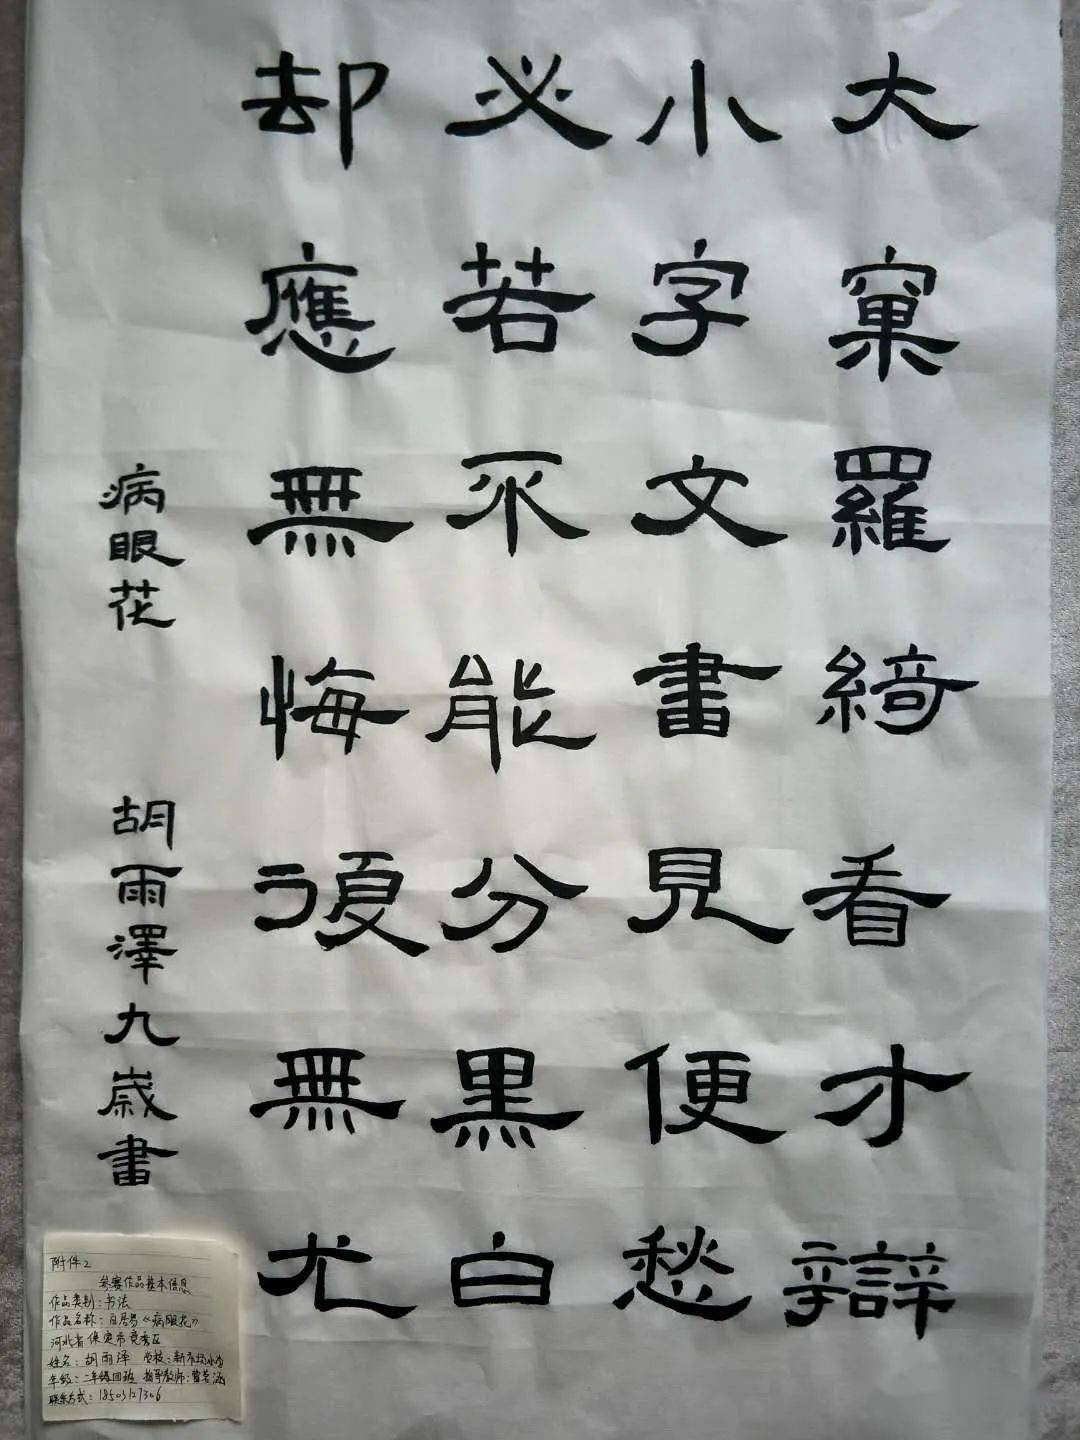 大窠羅綺看才辯
小字文書見便愁
必若不能分黑白
却應無悔復無尤
病眼花
胡雨澤九歲書
附件2
参赛作品基本信息
作品类别：书法
作品名称：白居易《病眼花》
河北省保定市竞秀区
姓名：胡雨泽 学校：新市场小学
年级：二年级四班 指导教师：曹芸涵
联系方式：18503127306